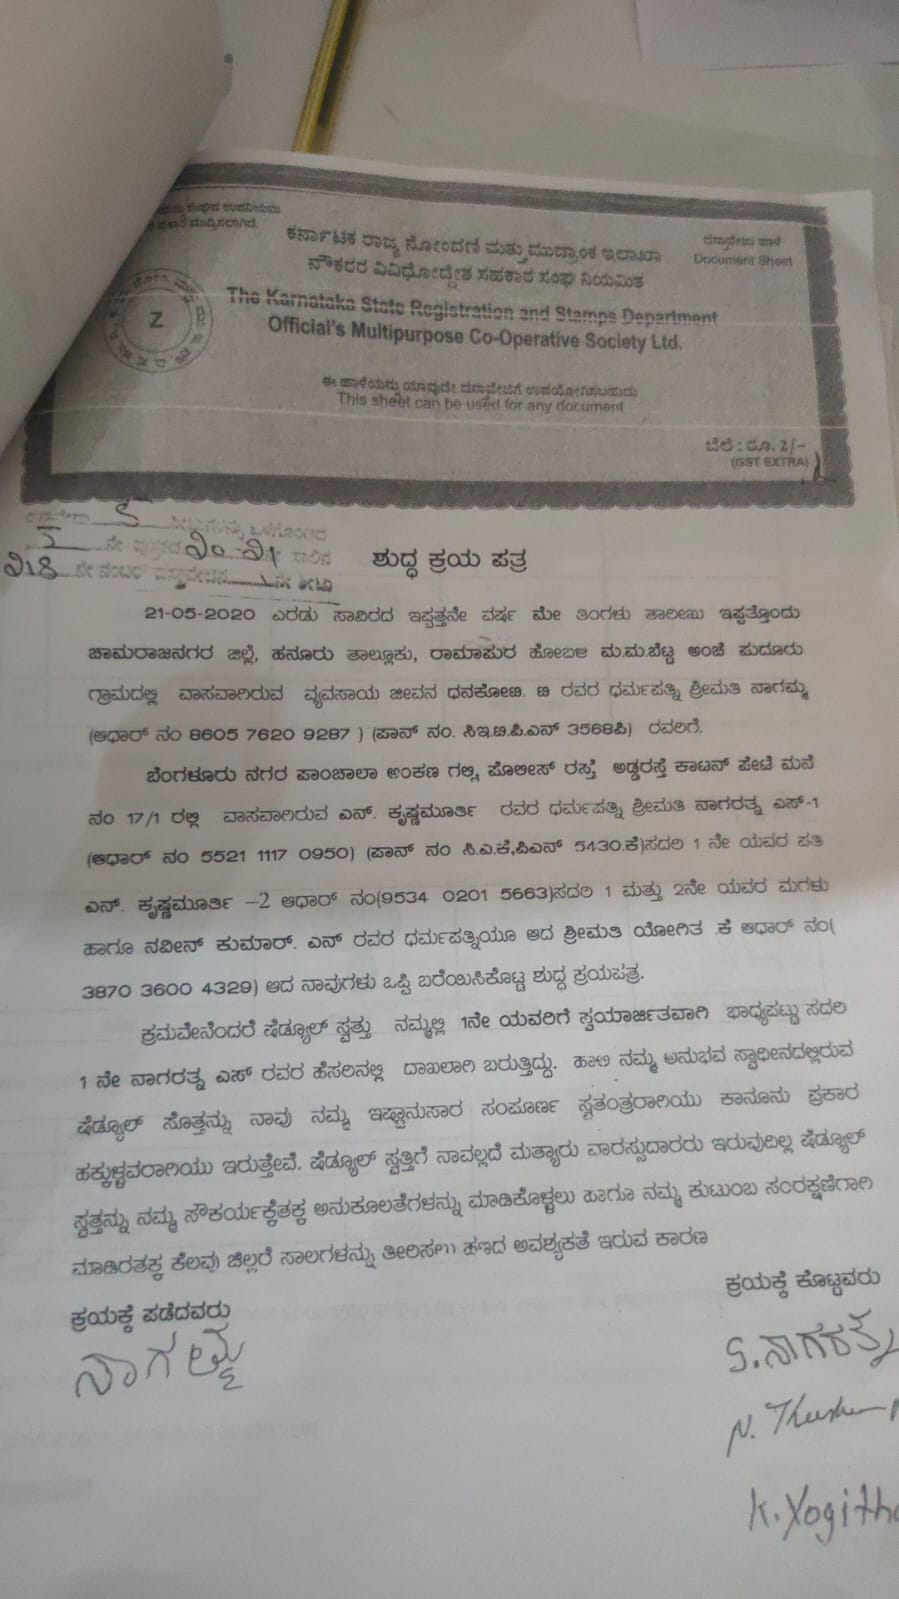 ಕರ್ನಾಟಕ ರಾಜ್ಯ ನೋಂದಣಿ ಮತ್ತು ಮುದ್ರಾಂಕ ಇಲಾಖಾ
ನೌಕರರ ವಿವಿಧೋದ್ದೇಶ ಸಹಕಾರ ಸಂಘ ನಿಯಮಿತ
ದಸ್ತಾವೇಜು ಹಾಳೆ
Document Sheet
The Karnataka State Registration and Stamps Department
Official's Multipurpose Co-Operative Society Ltd.
Z
ಈ ಹಾಳೆಯನ್ನು ಯಾವುದೇ ದಸ್ತಾವೇಜಿಗೆ ಉಪಯೋಗಿಸಬಹುದು
This sheet can be used for any document
ಬೆಲೆ : ರೂ. 2/-
(GST EXTRA)
ಶುದ್ಧ ಕ್ರಯ ಪತ್ರ
21-05-2020 ಎರಡು ಸಾವಿರದ ಇಪ್ಪತ್ತನೇ ವರ್ಷ ಮೇ ತಿಂಗಳು ತಾರೀಖು ಇಪ್ಪತ್ತೊಂದು
ಚಾಮರಾಜನಗರ ಜಿಲ್ಲೆ, ಹನೂರು ತಾಲ್ಲೂಕು, ರಾಮಾಪುರ ಹೋಬಳಿ ಮ.ಮ.ಬೆಟ್ಟ ಅಂಚೆ ಪುದೂರು
ಗ್ರಾಮದಲ್ಲಿ ವಾಸವಾಗಿರುವ ವ್ಯವಸಾಯ ಜೀವನ ಧನಕೋಟಿ. ಟಿ ರವರ ಧರ್ಮಪತ್ನಿ ಶ್ರೀಮತಿ ನಾಗಮ್ಮ
(ಆಧಾರ್ ನಂ 8605 7620 9287 ) (ಪಾನ್ ನಂ. ಸಿಇ.ಟಿ.ಪಿ.ಎನ್ 3568ಪಿ) ರವರಿಗೆ.
ಬೆಂಗಳೂರು ನಗರ ಪಾಂಚಾಲಾ ಅಂಕಣ ಗಲ್ಲಿ ಪೊಲೀಸ್ ರಸ್ತೆ ಅಡ್ಡರಸ್ತೆ ಕಾಟನ್ ಪೇಟೆ ಮನೆ
ನಂ 17/1 ರಲ್ಲಿ ವಾಸವಾಗಿರುವ ಎನ್. ಕೃಷ್ಣಮೂರ್ತಿ ರವರ ಧರ್ಮಪತ್ನಿ ಶ್ರೀಮತಿ ನಾಗರತ್ನ ಎಸ್-1
(ಆಧಾರ್ ನಂ 5521 1117 0950) (ಪಾನ್ ನಂ ಸಿ.ಎ.ಕೆ,ಪಿಎನ್ 5430.ಕೆ)ಸದರಿ 1 ನೇ ಯವರ ಪತಿ
ಎನ್. ಕೃಷ್ಣಮೂರ್ತಿ -2 ಆಧಾರ್ ನಂ(9534 0201 5663)ಸದರಿ 1 ಮತ್ತು 2ನೇ ಯವರ ಮಗಳು
ಹಾಗೂ ನವೀನ್ ಕುಮಾರ್. ಎನ್ ರವರ ಧರ್ಮಪತ್ನಿಯೂ ಆದ ಶ್ರೀಮತಿ ಯೋಗಿತ .ಕೆ ಆಧಾರ್ ನಂ(
3870 3600 4329) ಆದ ನಾವುಗಳು ಒಪ್ಪಿ ಬರೆಯಿಸಿಕೊಟ್ಟ ಶುದ್ಧ ಕ್ರಯಪತ್ರ.
ಕ್ರಮವೇನೆಂದರೆ ಷೆಡ್ಯೂಲ್ ಸ್ವತ್ತು ನಮ್ಮಲ್ಲಿ 1ನೇ ಯವರಿಗೆ ಸ್ವಯಾರ್ಜಿತವಾಗಿ ಭಾಧ್ಯಪಟ್ಟು ಸದರಿ
1 ನೇ ನಾಗರತ್ನ ಎಸ್ ರವರ ಹೆಸರಿನಲ್ಲಿ ದಾಖಲಾಗಿ ಬರುತ್ತಿದ್ದು. ಹಾಲಿ ನಮ್ಮ ಅನುಭವ ಸ್ವಾಧೀನದಲ್ಲಿರುವ
ಷೆಡ್ಯೂಲ್ ಸೊತ್ತನ್ನು ನಾವು ನಮ್ಮ ಇಷ್ಟಾನುಸಾರ ಸಂಪೂರ್ಣ ಸ್ವತಂತ್ರರಾಗಿಯು ಕಾನೂನು ಪ್ರಕಾರ
ಹಕ್ಕುಳ್ಳವರಾಗಿಯು ಇರುತ್ತೇವೆ. ಷೆಡ್ಯೂಲ್ ಸ್ವತ್ತಿಗೆ ನಾವಲ್ಲದೆ ಮತ್ಯಾರು ವಾರಸ್ಸುದಾರರು ಇರುವುದಿಲ್ಲ ಷೆಡ್ಯೂಲ್
ಸ್ವತ್ತನ್ನು ನಮ್ಮ ಸೌಕರ್ಯಕ್ಕೆತಕ್ಕ ಅನುಕೂಲತೆಗಳನ್ನು ಮಾಡಿಕೊಳ್ಳಲು ಹಾಗೂ ನಮ್ಮ ಕುಟುಂಬ ಸಂರಕ್ಷಣೆಗಾಗಿ
ಮಾಡಿರತಕ್ಕ ಕೆಲವು ಚಿಲ್ಲರೆ ಸಾಲಗಳನ್ನು ತೀರಿಸಲು ಹಣದ ಅವಶ್ಯಕತೆ ಇರುವ ಕಾರಣ
ಕ್ರಯಕ್ಕೆ ಪಡೆದವರು
ಕ್ರಯಕ್ಕೆ ಕೊಟ್ಟವರು
ನಾಗಮ್ಮ
S.ನಾಗರತ್ನ
K.Yogitha